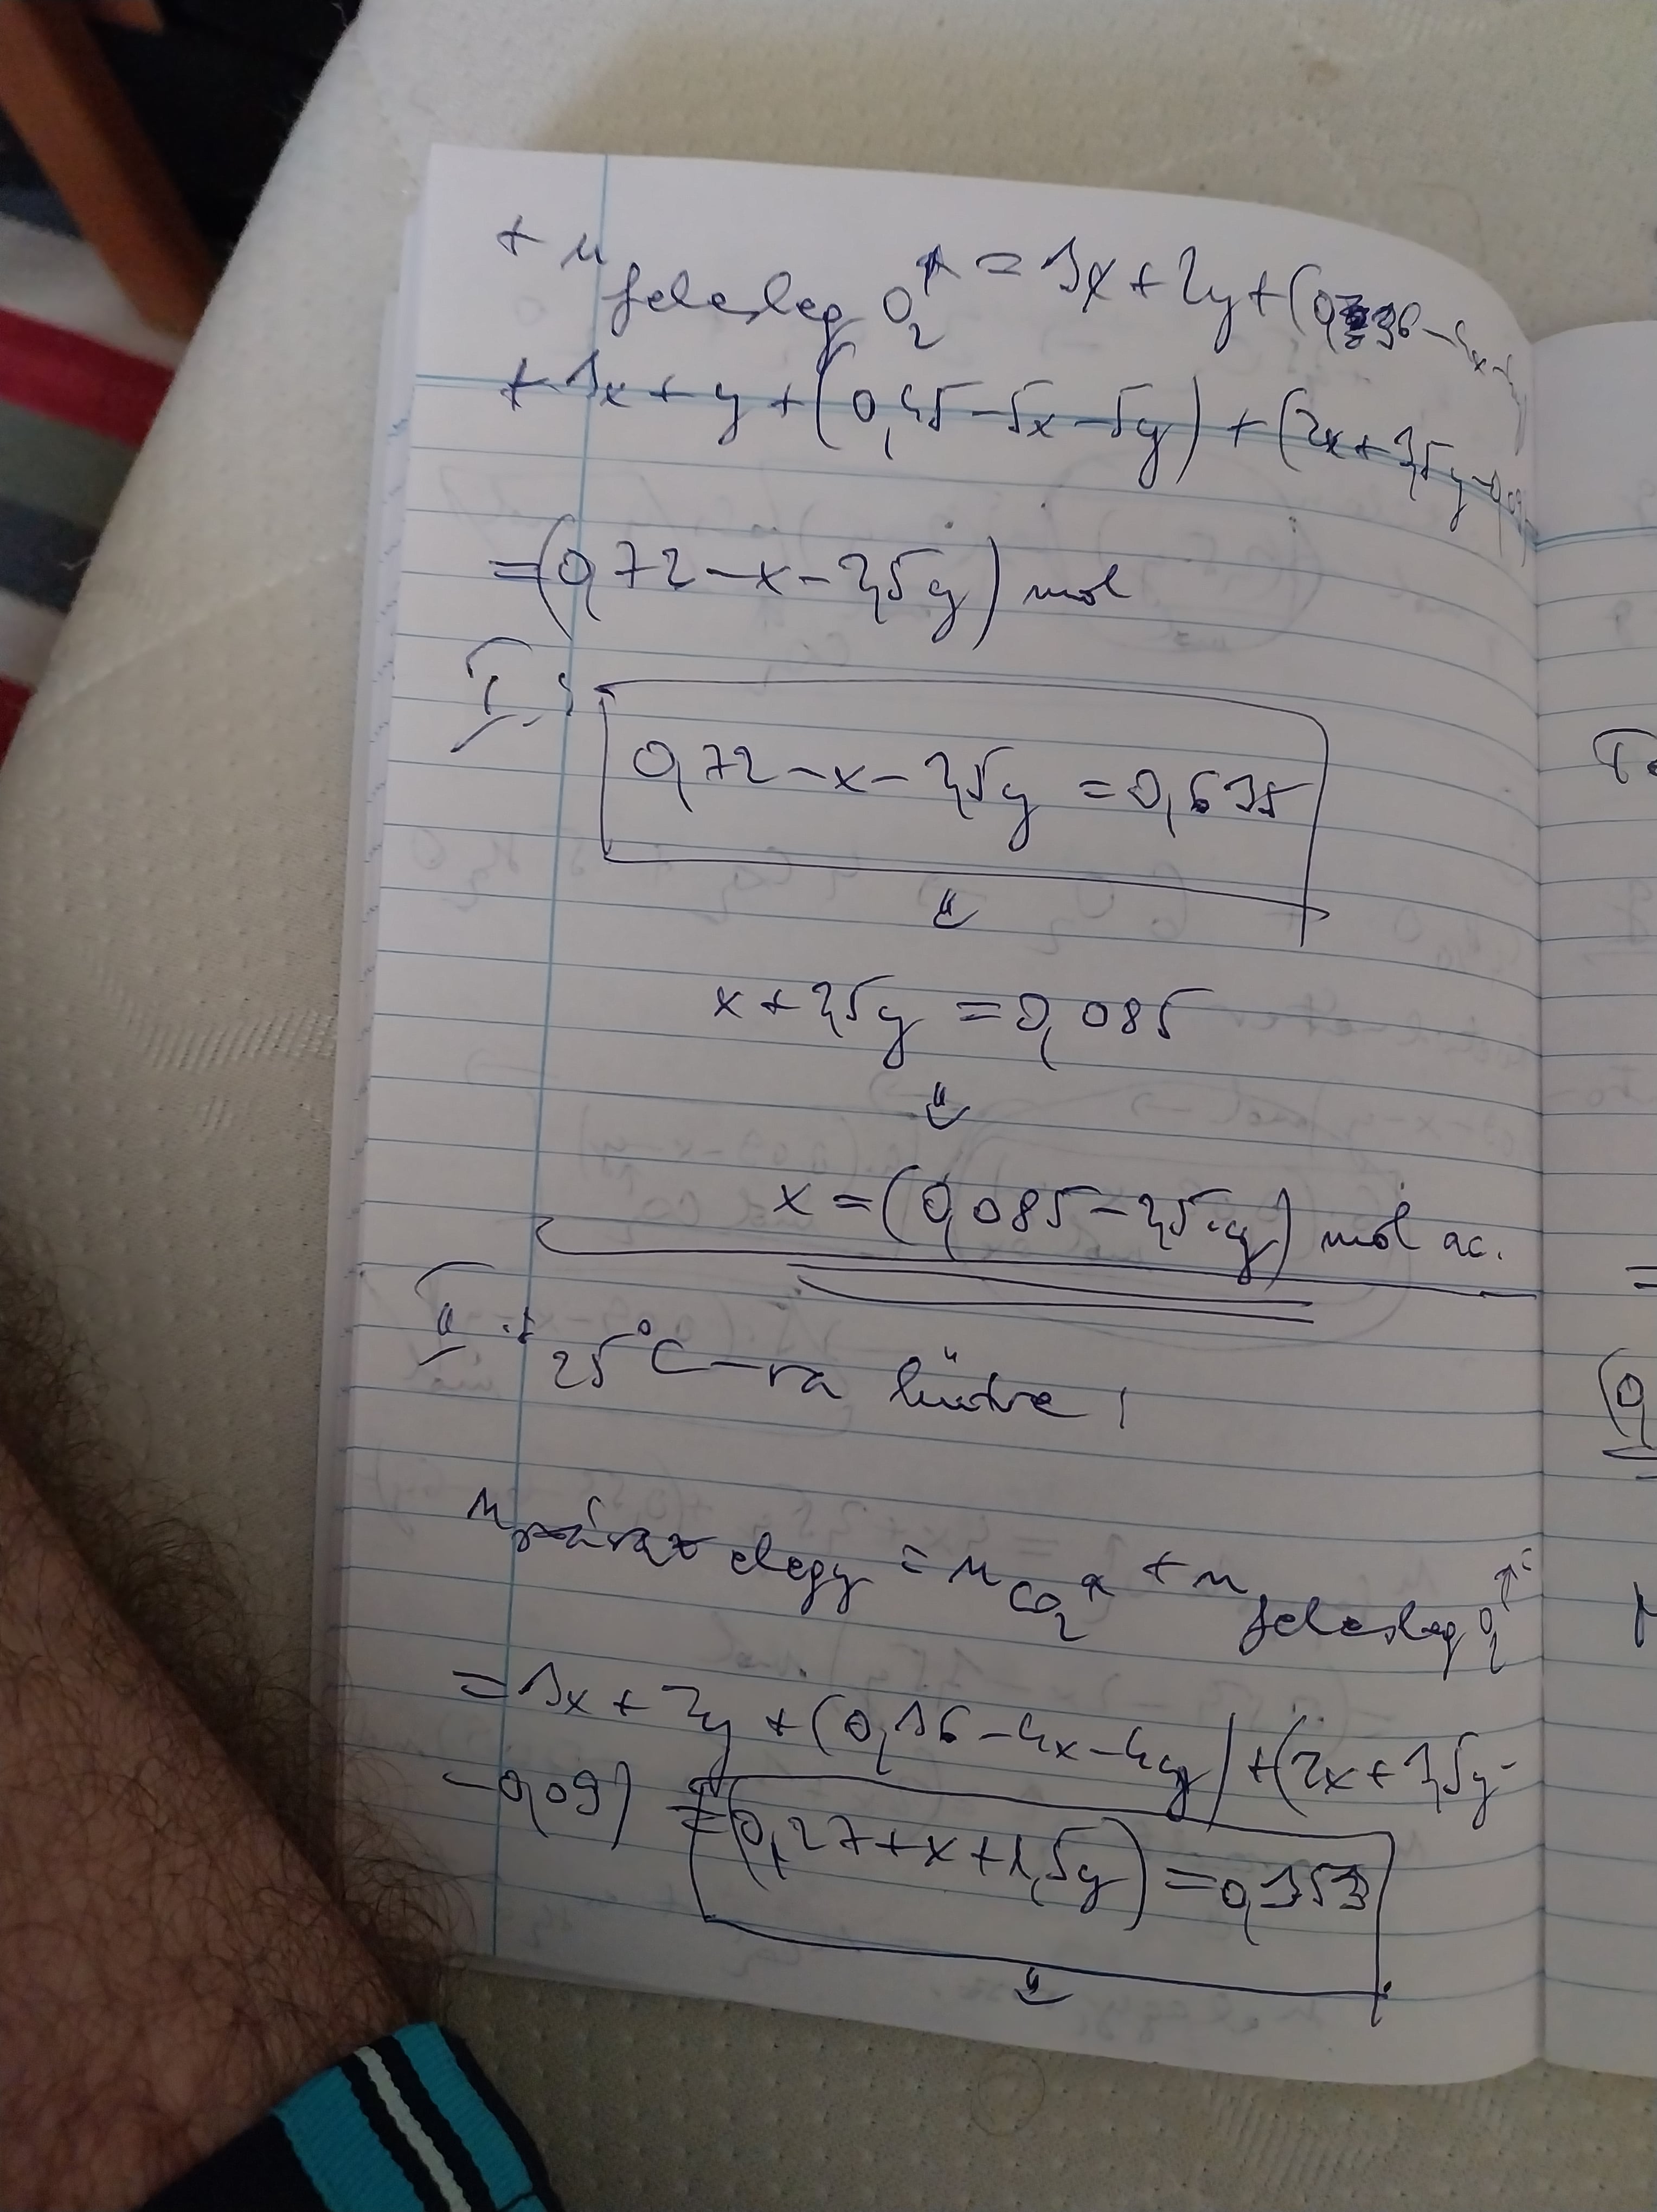 + n felesleg O2* = 3x + 2y + (0,36 - 4x - 4y)
+ 3x + y + (0,45 - 5x - 5y) + (2x + 3,5y - 0,09)
= (0,72 - x - 2,5y) mol
I.:
0,72 - x - 2,5y = 0,635
⇓
x + 2,5y = 0,085
⇓
x = (0,085 - 2,5·y) mol ac.
II.: 25°C-ra hűtve:
n száraz elegy = n CO2* + n felesleg O2* =
= 3x + 2y + (0,36 - 4x - 4y) + (2x + 3,5y -
- 0,09) = (0,27 + x + 1,5y) = 0,353
⇓